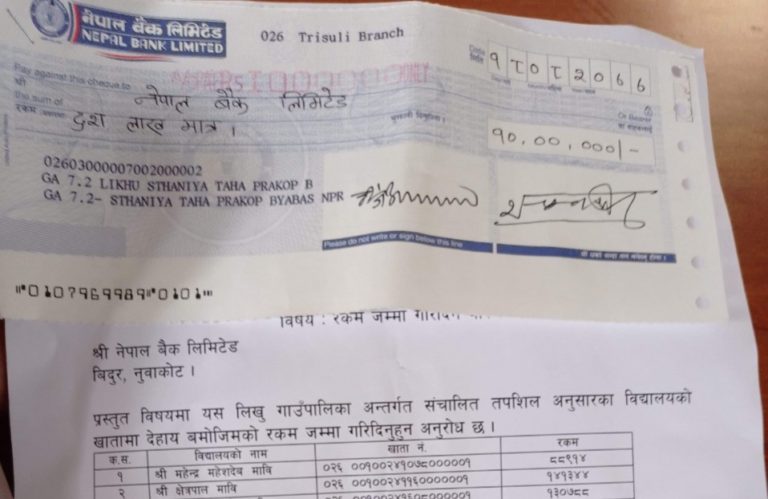 नेपाल बैंक लिमिटेड
NEPAL BANK LIMITED
026 Trisuli Branch
१८०८२०६६
Pay against this cheque to
श्री नेपाल बैंक लिमिटेड
Or Bearer
the sum of
रकम दश लाख मात्र ।
१०,००,०००/-
02603000007002000002
GA 7.2 LIKHU STHANIYA TAHA PRAKOP B
GA 7.2- STHANIYA TAHA PRAKOP BYABAS NPR
Please do not write or sign below this line
⑈0107969989⑈0101⑈
विषय : रकम जम्मा गरिदिने
श्री नेपाल बैक लिमिटेड
बिदुर, नुवाकोट ।
प्रस्तुत विषयमा यस लिखु गाउँपालिका अन्तर्गत संचालित तपशिल अनुसारका विद्यालयको
खातामा देहाय बमोजिमको रकम जम्मा गरिदिनुहुन अनुरोध छ ।
क.स. विद्यालयको नाम खाता नं. रकम
१ श्री महेन्द्र महेशदेव मावि ०२६ ००१००२४१०७८०००००१ ८८९१४
२ श्री क्षेत्रपाल मावि ०२६ ००१००२४११६०००००१ १४१३४४
१३०७८८